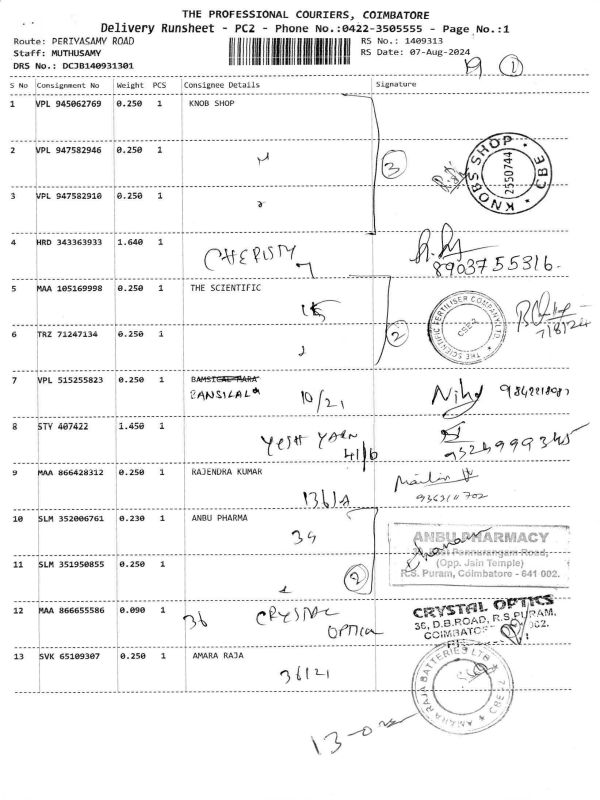 THE PROFESSIONAL COURIERS, COIMBATORE
Delivery Runsheet - PC2 - Phone No.:0422-3505555 - Page No.:1
Route: PERIYASAMY ROAD
RS No.: 1409313
Staff: MUTHUSAMY
RS Date: 07-Aug-2024
DRS No.: DCJB140931301
1
S No Consignment No Weight PCS Consignee Details Signature
1 VPL 945062769 0.250 1 KNOB SHOP
2 VPL 947582946 0.250 1
3
KNOBS SHOP * CBE *
2550744
3 VPL 947582910 0.250 1
4 HRD 343363933 1.640 1
8903755316.
5 MAA 105169998 0.250 1 THE SCIENTIFIC
THE SCIENTIFIC FERTILISER COMPANY LTD. *
CBE-2
7/8/24
6 TRZ 71247134 0.250 1
2
7 VPL 515255823 0.250 1
BANSILAL
10/21
8 STY 407422 1.450 1 YESH YARN
41/6
9 MAA 866428312 0.250 1 RAJENDRA KUMAR
10 SLM 352006761 0.230 1 ANBU PHARMA
34
ANBU PHARMACY
(Opp. Jain Temple)
R.S. Puram, Coimbatore - 641 002.
11 SLM 351950855 0.250 1
2
12 MAA 866655586 0.090 1 36 CRYSTAL
OPTICA
CRYSTAL OPTICS
36, D.B.ROAD, R.S.PURAM,
13 SVK 65109307 0.250 1 AMARA RAJA
36/21
AMARA RAJA BATTERIES LTD * CBE-2 *